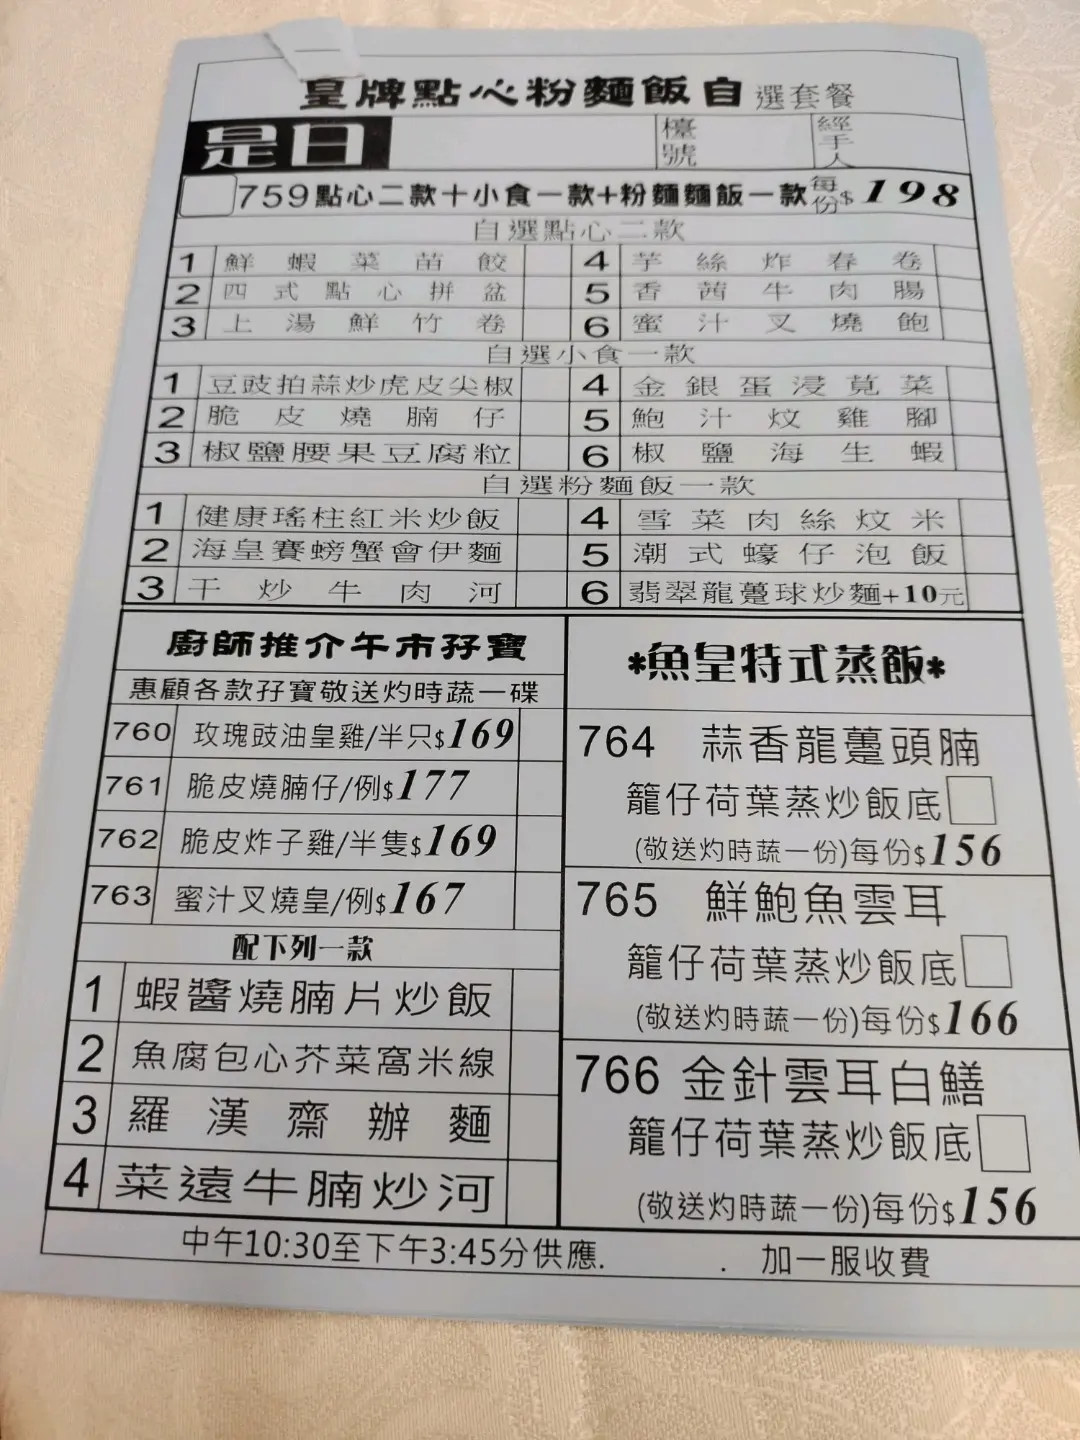 皇牌點心粉麵飯自選套餐
是日 檯號 經手人
759點心二款十小食一款+粉麵麵飯一款每份$198
自選點心二款
1 鮮蝦菜苗餃 4 芋絲炸春卷
2 四式點心拼盆 5 香茜牛肉腸
3 上湯鮮竹卷 6 蜜汁叉燒飽
自選小食一款
1 豆豉拍蒜炒虎皮尖椒 4 金銀蛋浸莧菜
2 脆皮燒腩仔 5 鮑汁炆雞腳
3 椒鹽腰果豆腐粒 6 椒鹽海生蝦
自選粉麵飯一款
1 健康瑤柱紅米炒飯 4 雪菜肉絲炆米
2 海皇賽螃蟹會伊麵 5 潮式蠔仔泡飯
3 干炒牛肉河 6 翡翠龍躉球炒麵+10元
廚師推介午市孖寶
惠顧各款孖寶敬送灼時蔬一碟
760 玫瑰豉油皇雞/半只$169
761 脆皮燒腩仔/例$177
762 脆皮炸子雞/半隻$169
763 蜜汁叉燒皇/例$167
配下列一款
1 蝦醬燒腩片炒飯
2 魚腐包心芥菜窩米線
3 羅漢齋辦麵
4 菜遠牛腩炒河
*魚皇特式蒸飯*
764 蒜香龍躉頭腩
籠仔荷葉蒸炒飯底
(敬送灼時蔬一份)每份$156
765 鮮鮑魚雲耳
籠仔荷葉蒸炒飯底
(敬送灼時蔬一份)每份$166
766 金針雲耳白鱔
籠仔荷葉蒸炒飯底
(敬送灼時蔬一份)每份$156
中午10:30至下午3:45分供應. . 加一服收費